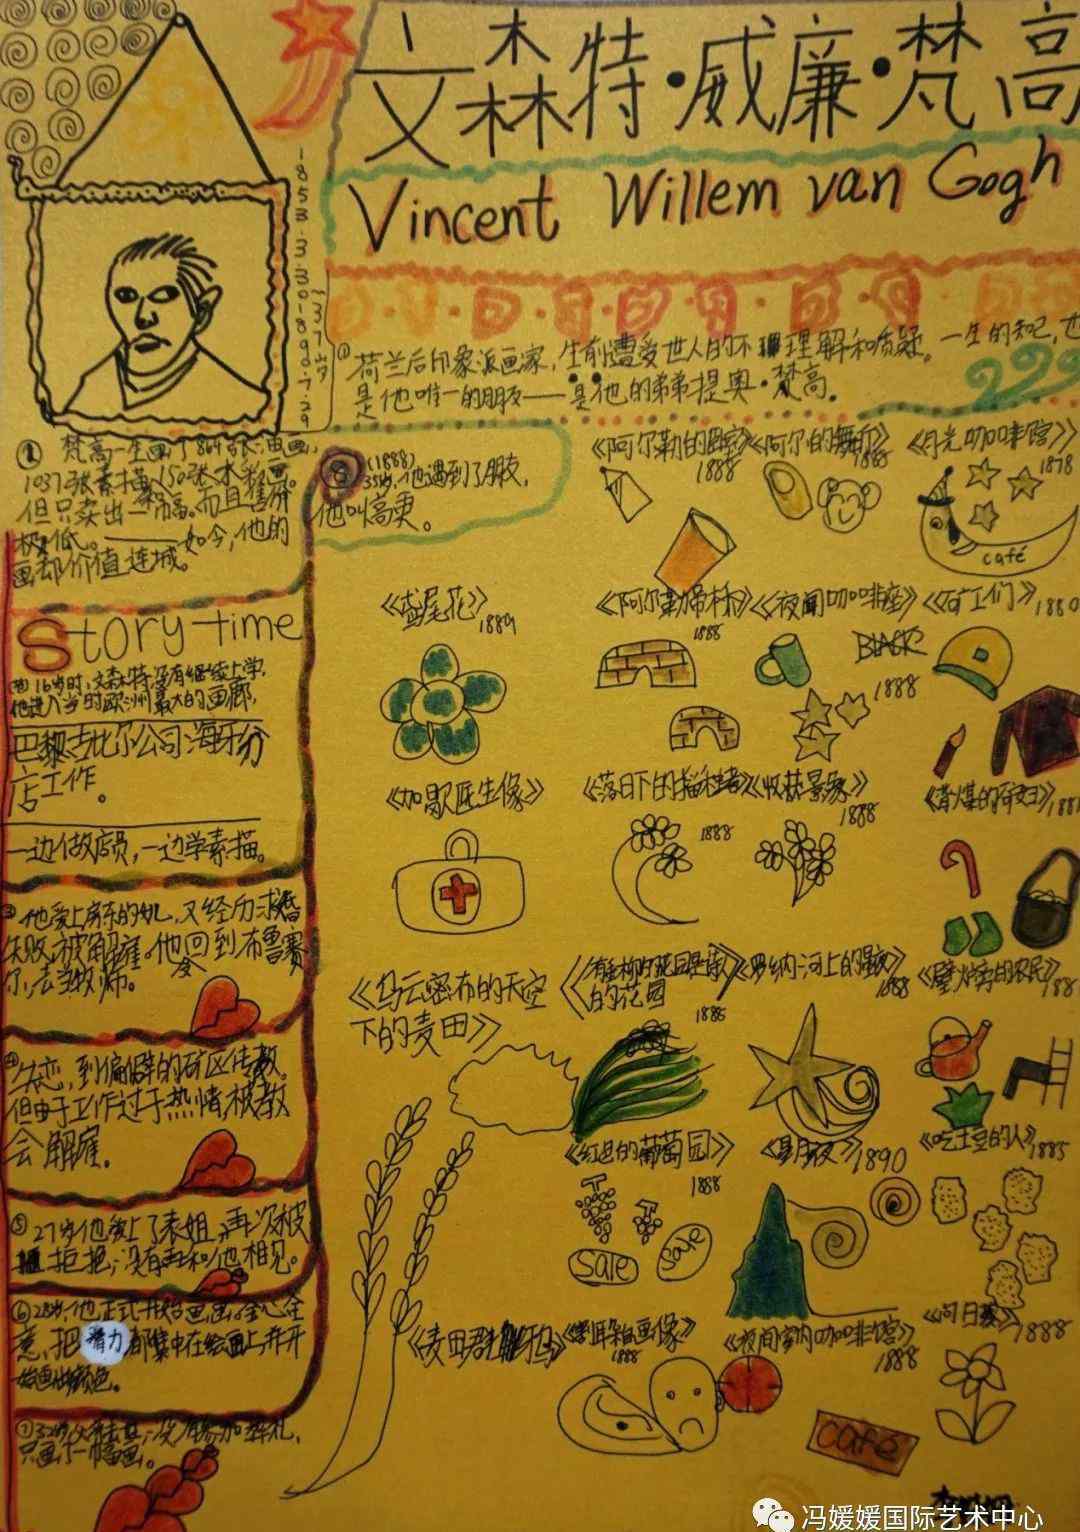 文森特·威廉·梵高
Vincent Willem van Gogh
1853.3.30
1890.7.29
37岁
①荷兰后印象派画家,生前遭受世人的不理解和质疑。一生的知己,也
是他唯一的朋友——是他的弟弟提奥·梵高。
梵高一生画了864张油画,
1037张素描、150张水彩画。
但只卖出一幅。而且售价
极低。——如今,他的
画却价值连城。
(1888)
35岁,他遇到了朋友,
他叫高更。
Story time
16岁时,文森特没有继续上学,
他进入当时欧洲最大的画廊,
巴黎古比尔公司海牙分
店工作。
一边做店员,一边学素描。
③他爱上房东的女儿,又经历求婚
失败,被解雇。他回到布鲁塞
尔,去当牧师。
④失恋,到偏僻的矿区传教。
但由于工作过于热情,被教
会解雇。
⑤27岁他爱上了表姐,再次被
拒绝;没有再和他相见。
⑥28岁,他正式开始画画。全心全
意,把潜力都集中在绘画上并开
始画出颜色。
⑦32岁父亲去世,没有参加葬礼,
只画了一幅画。
《阿尔勒的卧室》
1888
《阿尔的舞厅》
1888
《月光咖啡馆》
1878
café
《鸢尾花》
1889
《阿尔勒吊桥》
1888
《夜间咖啡座》
1888
《矿工们》1880
BLACK
《加歇医生像》
《落日下的播种者》
1888
《收获景象》
1888
《背煤的矿妇》1881
《乌云密布的天空
下的麦田》
的花园
1888
《罗纳河上的星夜》
1888
《壁炉旁的农民》
《红色的葡萄园》
1888
sale
sale
《星月夜》1890
《吃土豆的人》
1885
《麦田群鸦》
《割耳朵自画像》
1888
《夜间室内咖啡馆》
1888
café
《向日葵》
1888
冯媛媛国际艺术中心